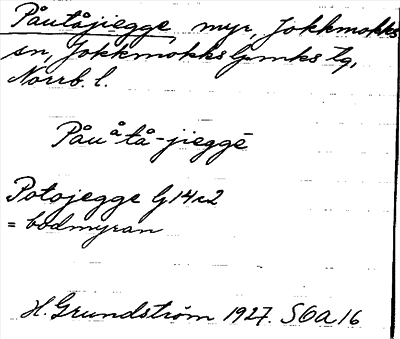 Påutåjiegge, myr, Jokkmokks
sn, Jokkmokks lpmks tg,
Norrb. l.
Påuåtå-jieggē
Potojegge G 14 c2
= bodmyran
H. Grundström 1927. SOa 16